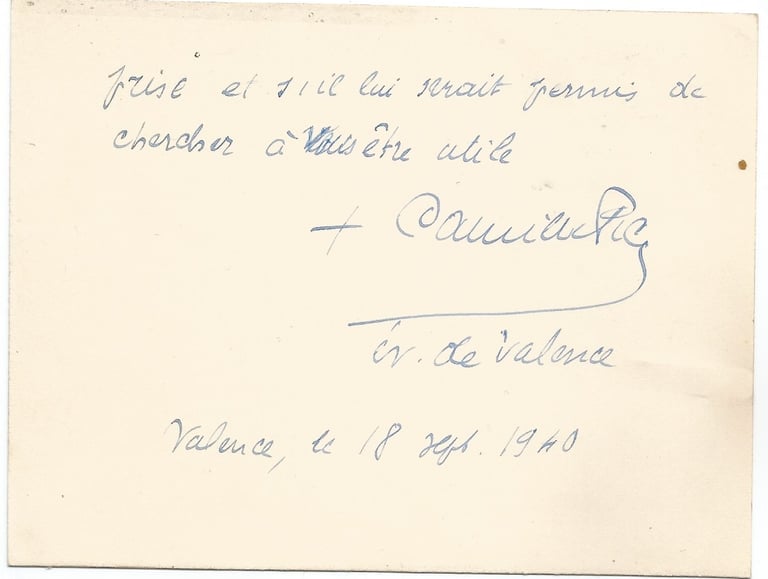 prise et s'il lui serait permis de
chercher à vous être utile
+ Camille Pic
év. de Valence
Valence, le 18 sept. 1940